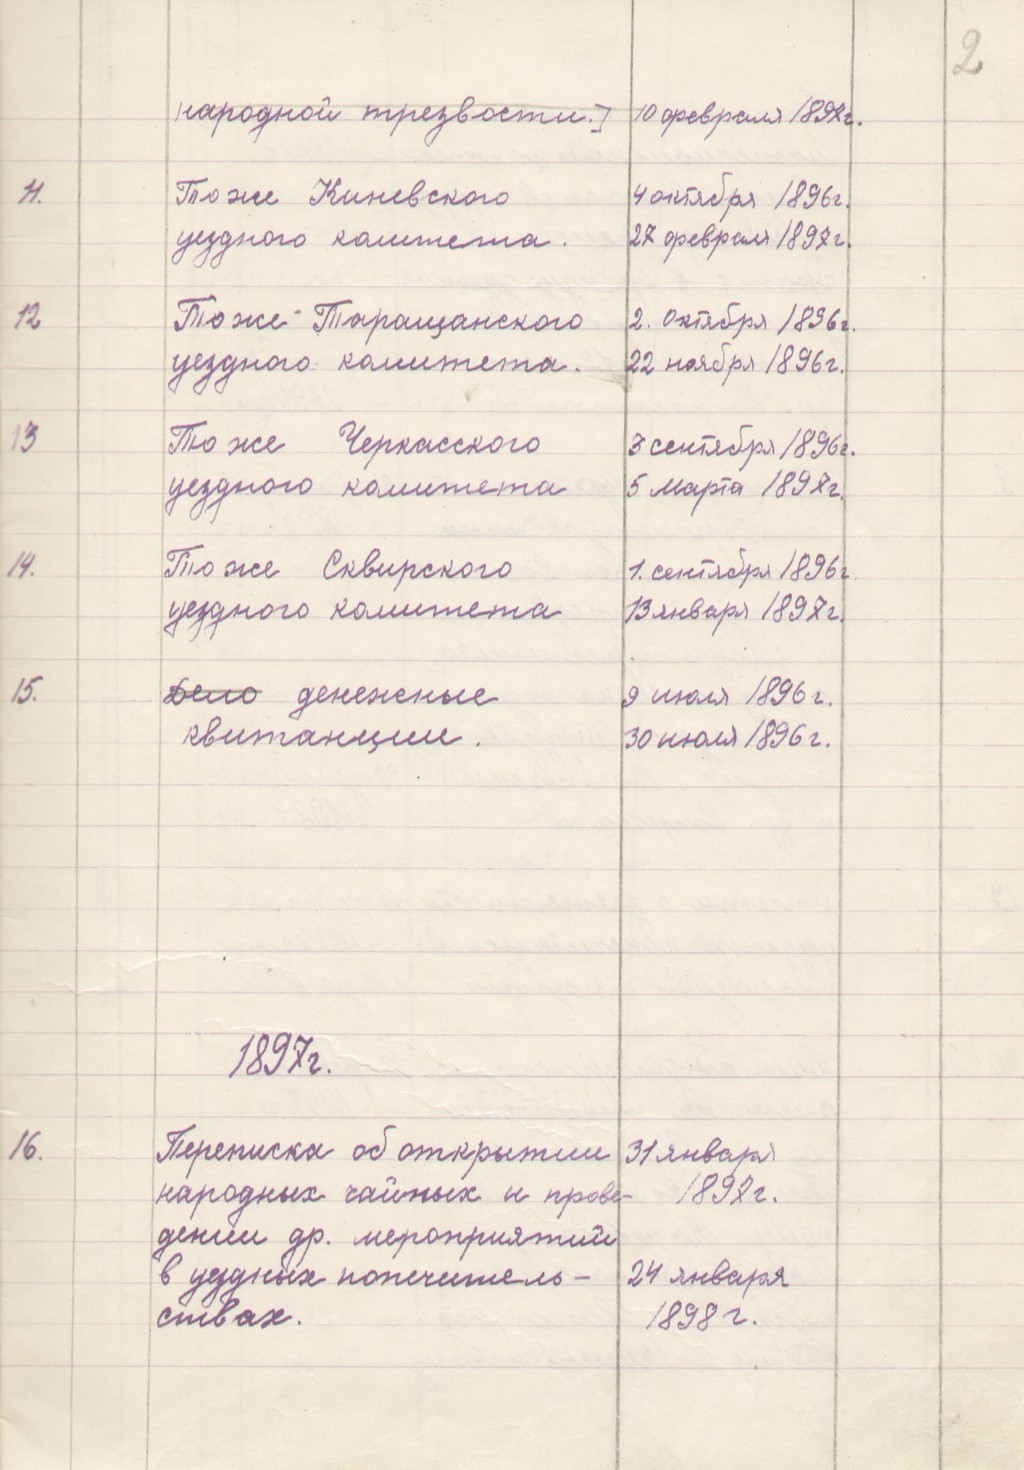 2
народной трезвости.] 10 февраля 1897г.
11. То же Киевского 4 октября 1896г.
уездного комитета. 27 февраля 1897г.
12 То же Таращанского 2. октября 1896г.
уездного комитета. 22 ноября 1896г.
13 То же Черкасского 3 сентября 1896г.
уездного комитета 5 марта 1897г.
14. То же Сквирского 1. сентября 1896г.
уездного комитета 13 января 1897г.
15. Дело денежные 9 июля 1896г.
квитанции. 30 июля 1896г.
1897г.
16. Переписка об открытии 31 января
народных чайных и прове- 1897г.
дении др. мероприятий
в уездных попечитель- 24 января
ствах. 1898г.